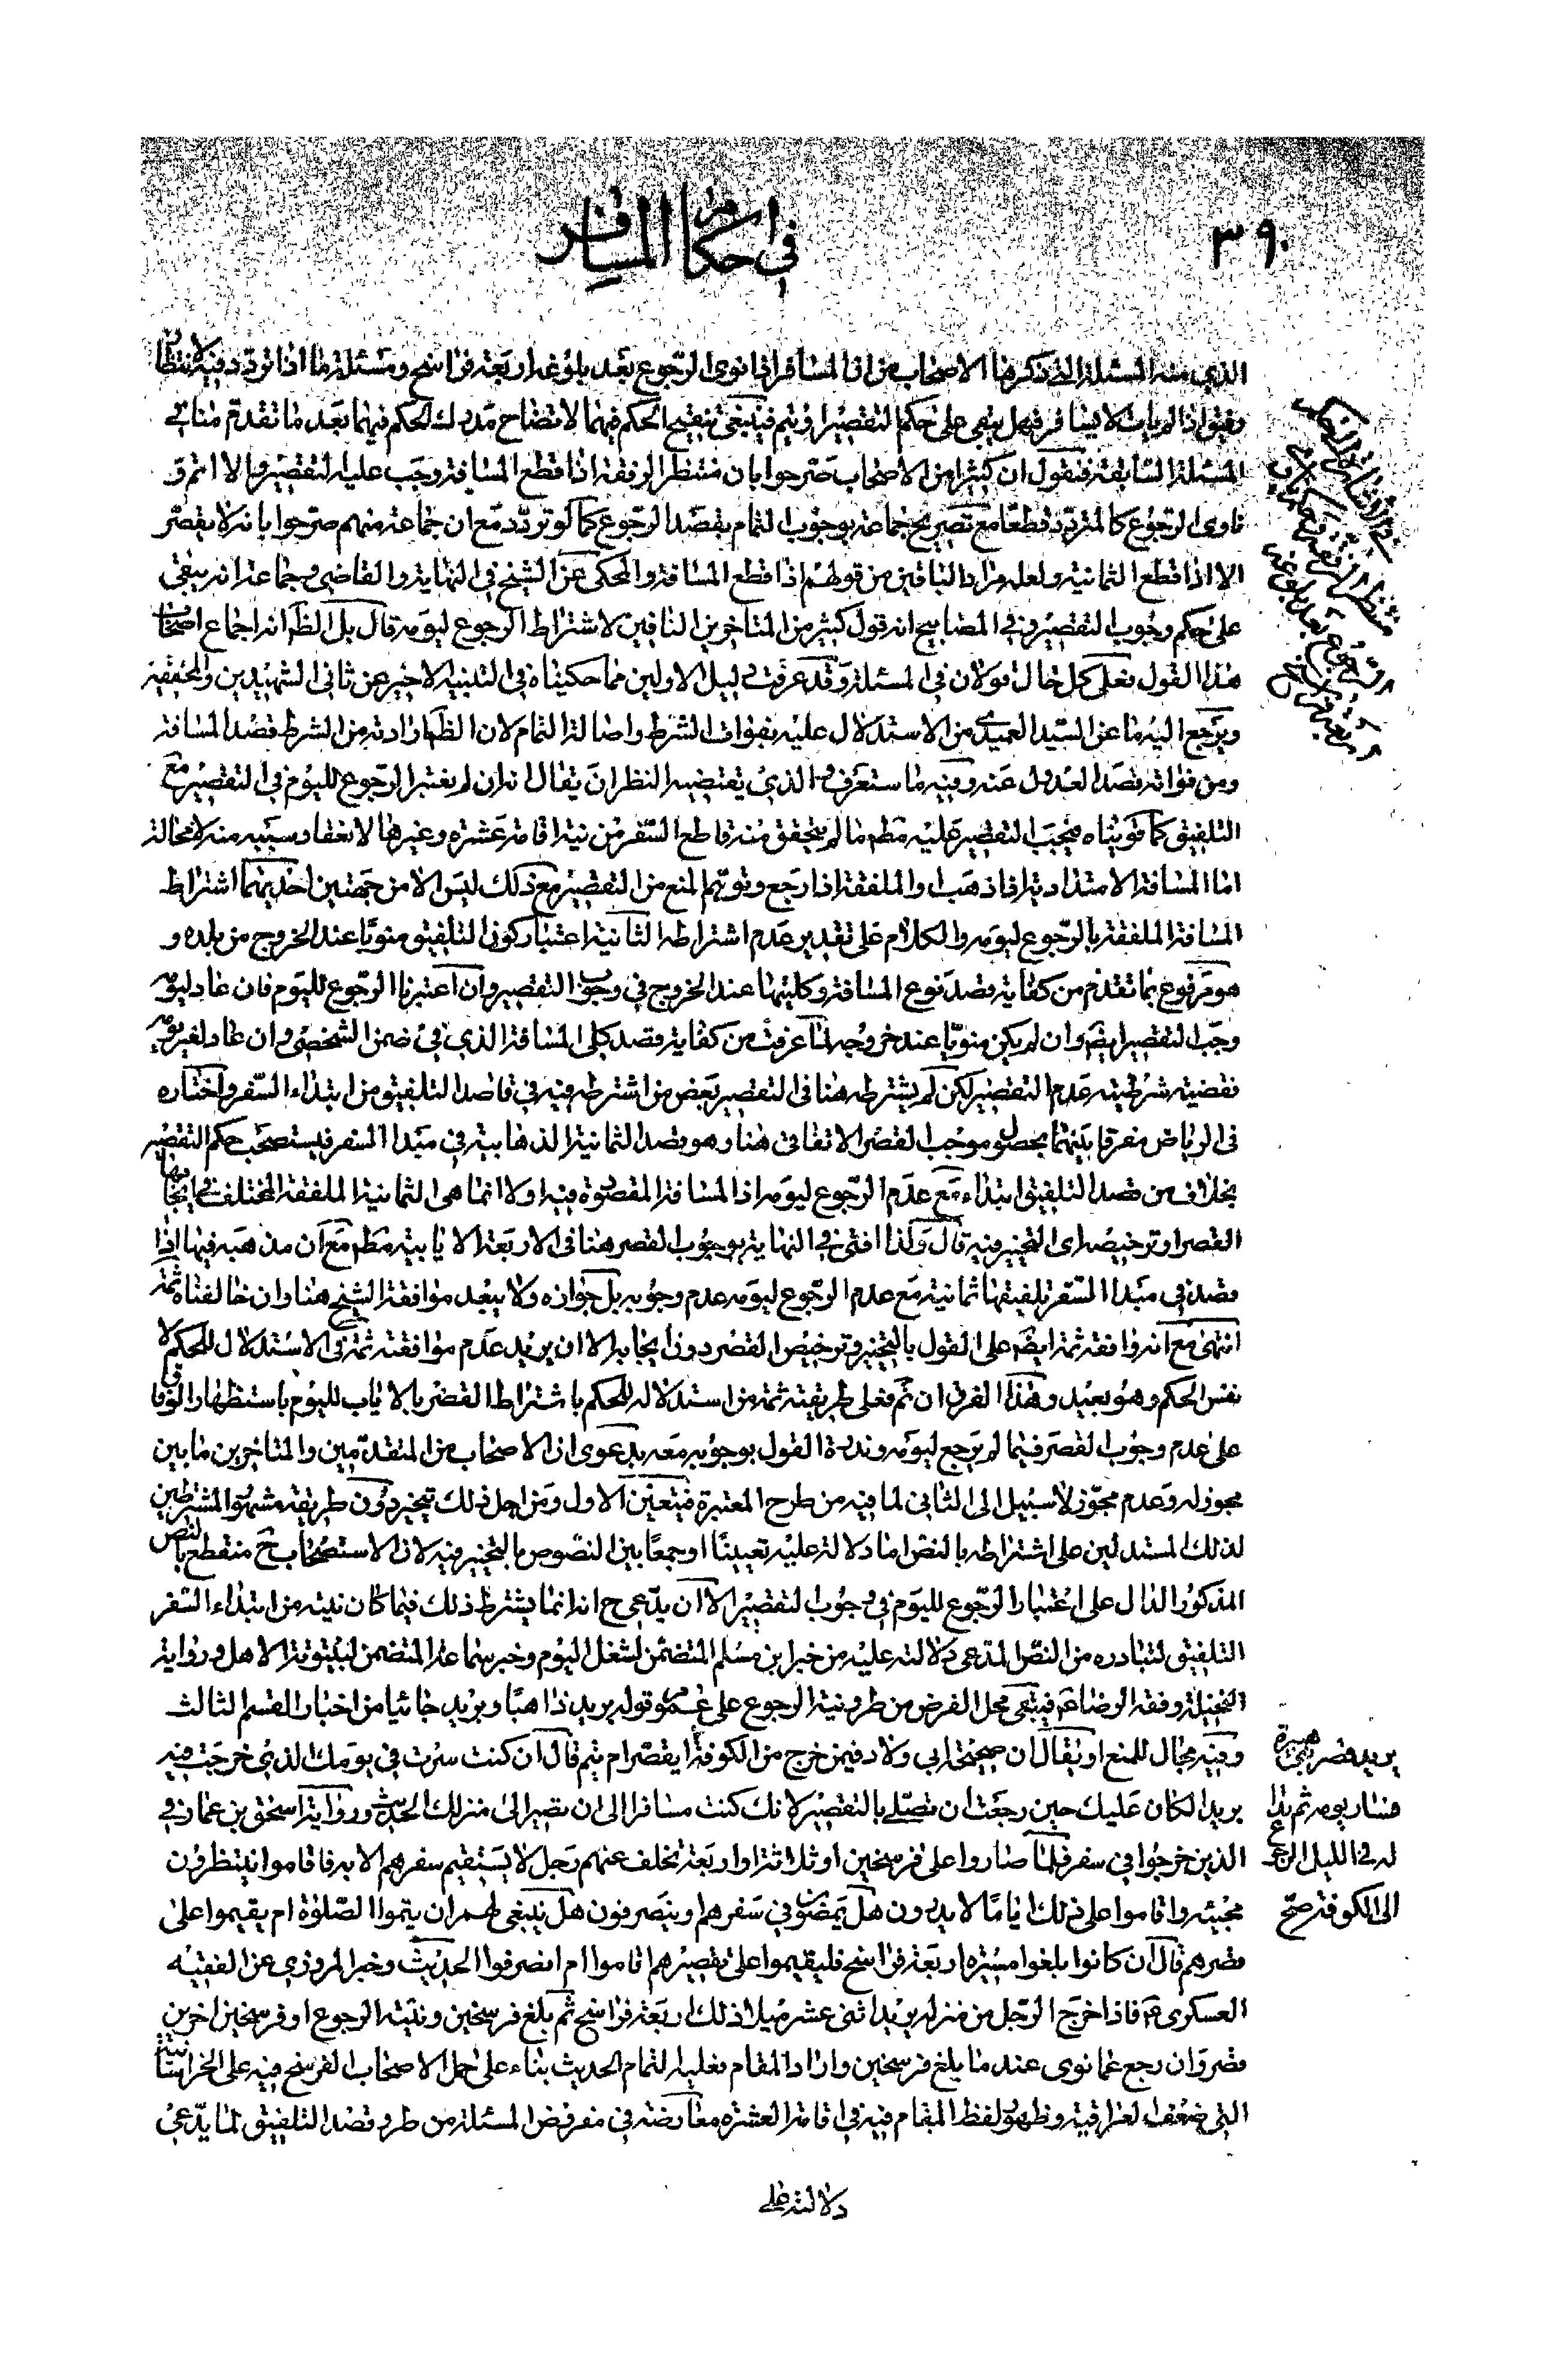 ٣٩٠
في احكام المسافر
الذي منه المسئلة التي ذكرها الاصحاب من ان المسافر اذا نوى الرجوع بعد بلوغه اربعة فراسخ ومسئلة ما اذا تردد فيه لانتظار
رفيق اذا لم يات لا يسافر فهل يبقى على حكم التقصير او يتم فينبغي تنقيح الحكم فيهما لاتضاح مدرك الحكم فيهما بعد ما تقدم منا في
المسئلة السابقة فنقول ان كثيرا من الاصحاب صرحوا بان منتظر الرفقة اذا قطع المسافة وجب عليه التقصير والا اتم و
ناوي الرجوع كالمتردد قطعا مع تصريح جماعة بوجوب التمام بقصد الرجوع كما لو تردد مع ان جماعة منهم صرحوا بانه لا يقصر
الا اذا قطع الثمانية ولعله مراد الباقين من قولهم اذا قطع المسافة والمحكى عن الشيخ في النهاية والقاضي وجماعة انه يبقى
على حكم وجوب التقصير وفي المصابيح انه قول كثير من المتاخرين النافين لاشتراط الرجوع ليومه قال بل الظ انه اجماع اصحاب
هذا القول فعلى كل حال قولان في المسئلة وقد عرفت دليل الاولين مما حكيناه في التنبيه الاخير عن ثاني الشهيدين والمحقق
ويرجع اليه ما عن السيد العميدي من الاستدلال عليه بفوات الشرط واصالة التمام لان الظ ارادته من الشرط قصد المسافة
ومن فواته قصد العدول عنه وفيه ما ستعرف والذي يقتضيه النظر ان يقال انه ان لم يعتبر الرجوع لليوم في التقصير مع
التلفيق كما قويناه فيجب التقصير عليه مطم ما لم يتحقق منه قاطع السفر من نية اقامة عشرة وغيرها لانعقاد سببيه منه لا محالة
اما المسافة الامتدادية اذا ذهب او الملفقة اذا رجع وتوهم المنع من التقصير مع ذلك ليس الا من جهتين احديهما اشتراط
المسافة الملفقة بالرجوع ليومه والكلام على تقدير عدم اشتراطه الثانية اعتبار كون التلفيق منويا عند الخروج من بلده و
هو مرفوع بما تقدم من كفاية قصد نوع المسافة وكليتها عند الخروج في وجوب التقصير وان اعتبرنا الرجوع لليوم فان عاد ليومه
وجب التقصير ايضا وان لم يكن منويا عند خروجه لما عرفت من كفاية قصد كلي المسافة الذي في ضمن الشخصي وان عاد لغير يومه
فقضية شرطيته عدم التقصير لكن لم يشترطه هنا في التقصير بعض من اشترطه فيه في قاصد التلفيق من ابتداء السفر واختاره
في الرياض مفرقا بينهما بحصول موجب القصر الاتفاقي هنا وهو قصد الثمانية الذهابية في مبدا السفر فيستصحب حكم التقصير
بخلاف من قصد التلفيق ابتداء مع عدم الرجوع ليومه اذ المسافة المقصودة فيه اولا انما هي الثمانية الملفقة المختلف في ايجابها
القصر او ترخيصه اي التخيير فيه قال ولذا افتى في النهاية بوجوب القصر هنا في الاربعة الايابية مطم مع ان مذهبه فيها اذا
قصد في مبدا السفر تلفيقها ثمانية مع عدم الرجوع ليومه عدم وجوبه بل جوازه ولا يبعد موافقة الشيخ هنا وان خالفناه ثمة
انتهى مع انه وافقه ثمة ايضا على القول بالتخيير وترخيص القصر دون ايجابه الا ان يريد عدم موافقته ثمة في الاستدلال للحكم لا
نفس الحكم وهو بعيد وهذا الفرق ان تم فعلى طريقته ثمة من استدلاله للحكم باشتراط القصر بالاياب لليوم باستظهار الوفاق
على عدم وجوب القصر فيما لم يرجع ليومه وندرة القول بوجوبه معه بدعوى ان الاصحاب من المتقدمين والمتاخرين ما بين
مجوز له وعدم مجوز لا سبيل الى الثاني لما فيه من طرح المعتبرة فيتعين الاول ومن اجل ذلك تخير دون طريقة مشهور المشترطين
لذلك المستدلين على اشتراطه بالنص اما دلالة عليه تعيينا او جمعا بين النصوص بالتخيير فيه لان الاستصحاب ح منقطع بالنص
المذكور الدال على اعتبار الرجوع لليوم في وجوب التقصير الا ان يدعي ح انه انما يشترط ذلك فيما كان نيته من ابتداء السفر
التلفيق لتبادره من النص المدعى دلالته عليه من خبر ابن مسلم المتضمن لشغل اليوم وخبر سماعة المتضمن لبيتوتة الاهل ورواية
وفقه الرضا ع فيبقى محل الفرض من طرو نية الرجوع على عموم قوله بريد ذاهبا وبريد جائيا من اخبار القسم الثالث
وفيه مجال للمنع او يقال ان صحيحة ابي ولاد فيمن خرج من الكوفة ايقصر ام يتم قال ان كنت سرت في يومك الذي خرجت فيه
بريدا لكان عليك حين رجعت ان تصلي بالتقصير لانك كنت مسافرا الى ان تصير الى منزلك الحديث ورواية اسحق بن عمار في
الذين خرجوا في سفر فلما صاروا على فرسخين او ثلاثة او اربعة تخلف عنهم رجل لا يستقيم سفرهم الا به فاقاموا ينتظرون
مجيئه واقاموا على ذلك اياما لا يدرون هل يمضون في سفرهم او ينصرفون هل ينبغي لهم ان يتموا الصلوة ام يقيموا على
قصرهم قال ان كانوا بلغوا مسيرة اربعة فراسخ فليقيموا على تقصيرهم اقاموا ام انصرفوا الحديث وخبر المروزي عن الفقيه
العسكري ع فاذا خرج الرجل من منزله يريد اثنى عشر ميلا ذلك اربعة فراسخ ثم بلغ فرسخين ونيته الرجوع او فرسخين اخرين
قصر وان رجع عما نوى عند ما بلغ فرسخين واراد المقام فعليه التمام الحديث بناء على حمل الاصحاب الفرسخ فيه على الخراسانية
التي ضعف العراقية وظهور لفظ المقام فيه في اقامة العشرة معارضة في مفروض المسئلة من طرو قصد التلفيق لما يدعى
دلالته على
منتظر الرفقة
الرجوع بعد بلوغه
اربعة فراسخ
يريد قصر ابن هبيرة
فسار يومه ثم بدا
له في الليل الرجوع
الى الكوفة صح